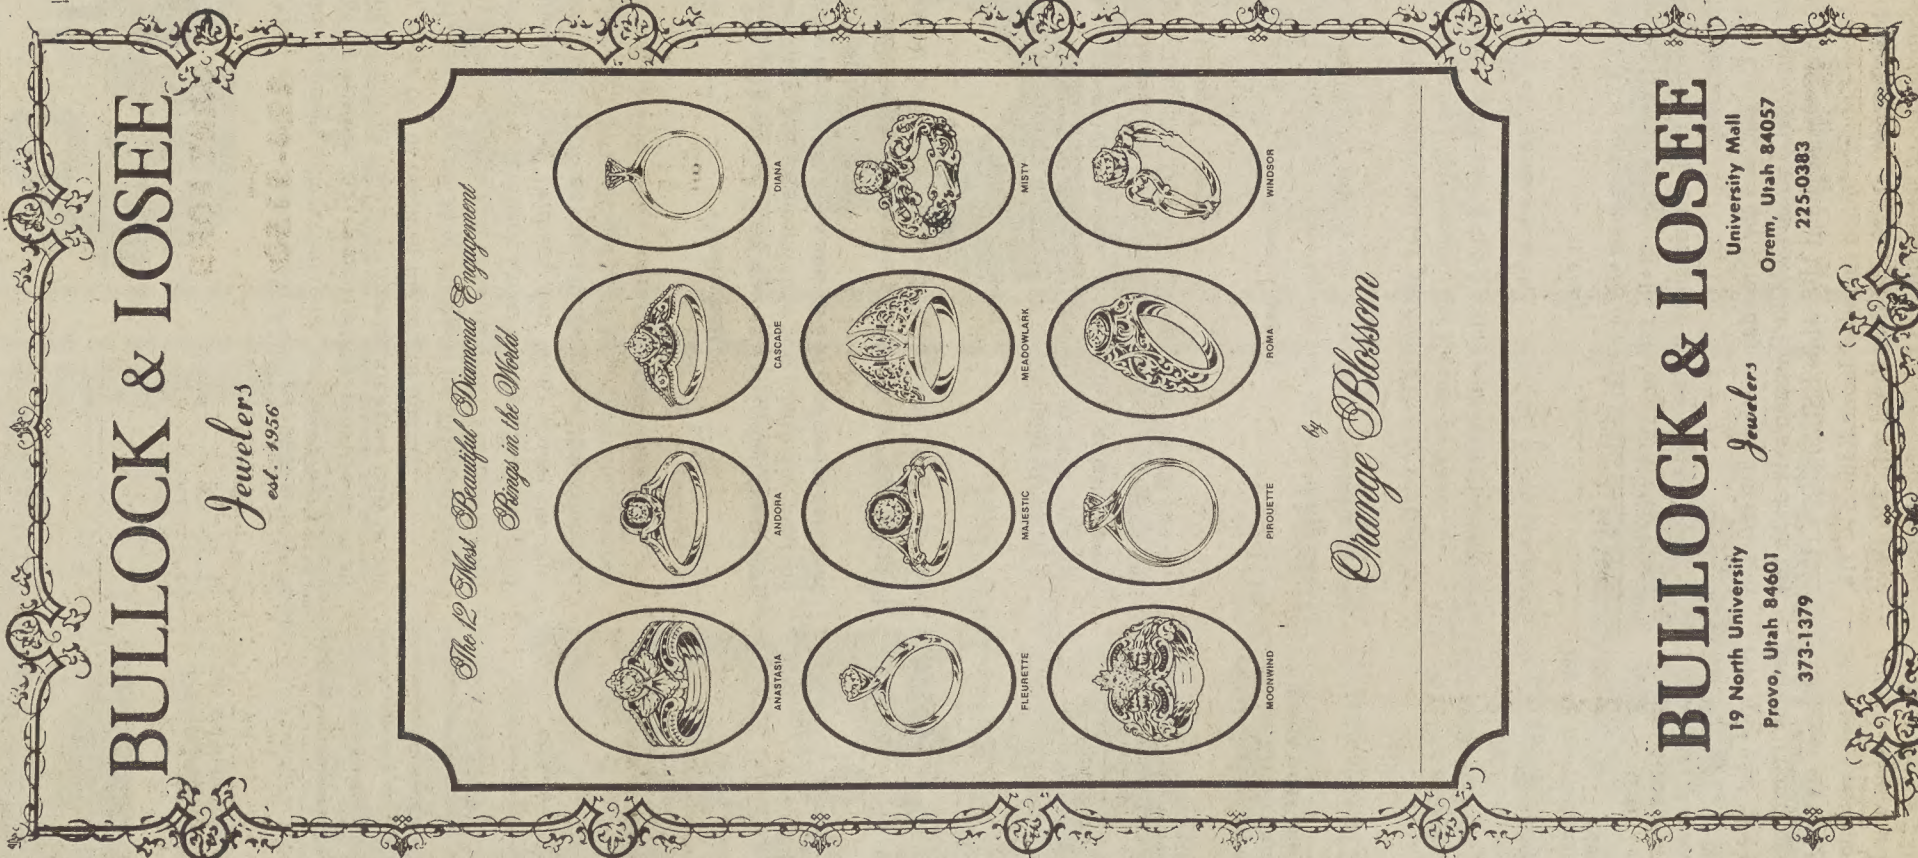 BULLOCK & LOSEE
Jewelers
est. 1956
The 12 Most Beautiful Diamond Engagement
Rings in the World
ANASTASIA ANDORA CASCADE DIANA
FLEURETTE MAJESTIC MEADOWLARK MISTY
MOONWIND PIROUETTE ROMA WINDSOR
by
Orange Blossom
BULLOCK & LOSEE
Jewelers
19 North University
Provo, Utah 84601
373-1379
University Mall
Orem, Utah 84057
225-0383